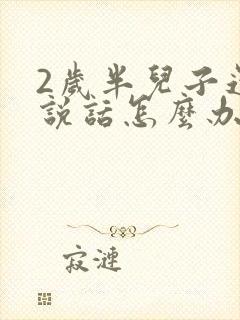 2歲半兒子還
說話怎麼办
寂漣